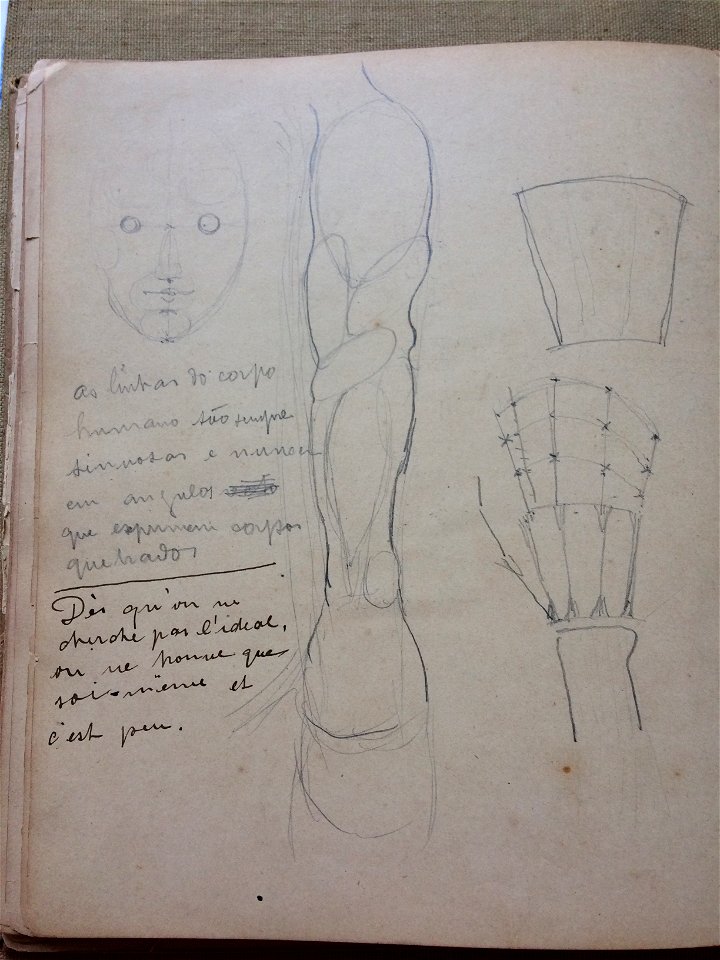 As linhas do corpo
humano são sempre
sinuosas e nunca
em angulos
que exprimem corpos
quebrados
Dès qu'on ne
cherche pas l'ideal,
on ne trouve que
soi-même et
c'est peu.